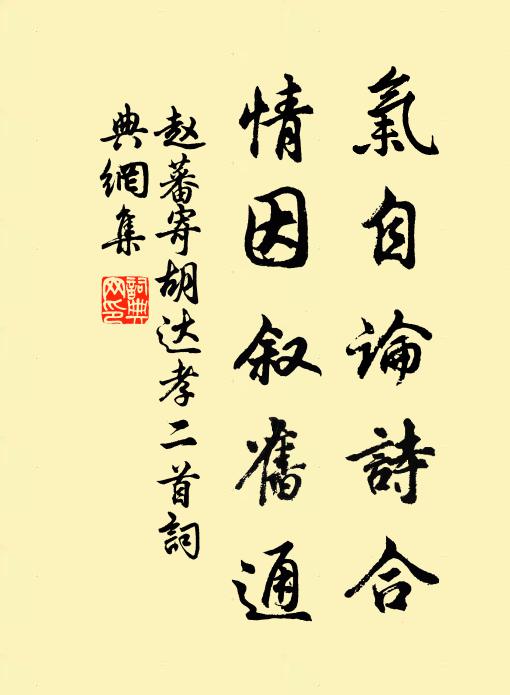 氣自論詩合
情因叙舊通
赵蕃寄胡达孝二首詞
典網集
詞典網印